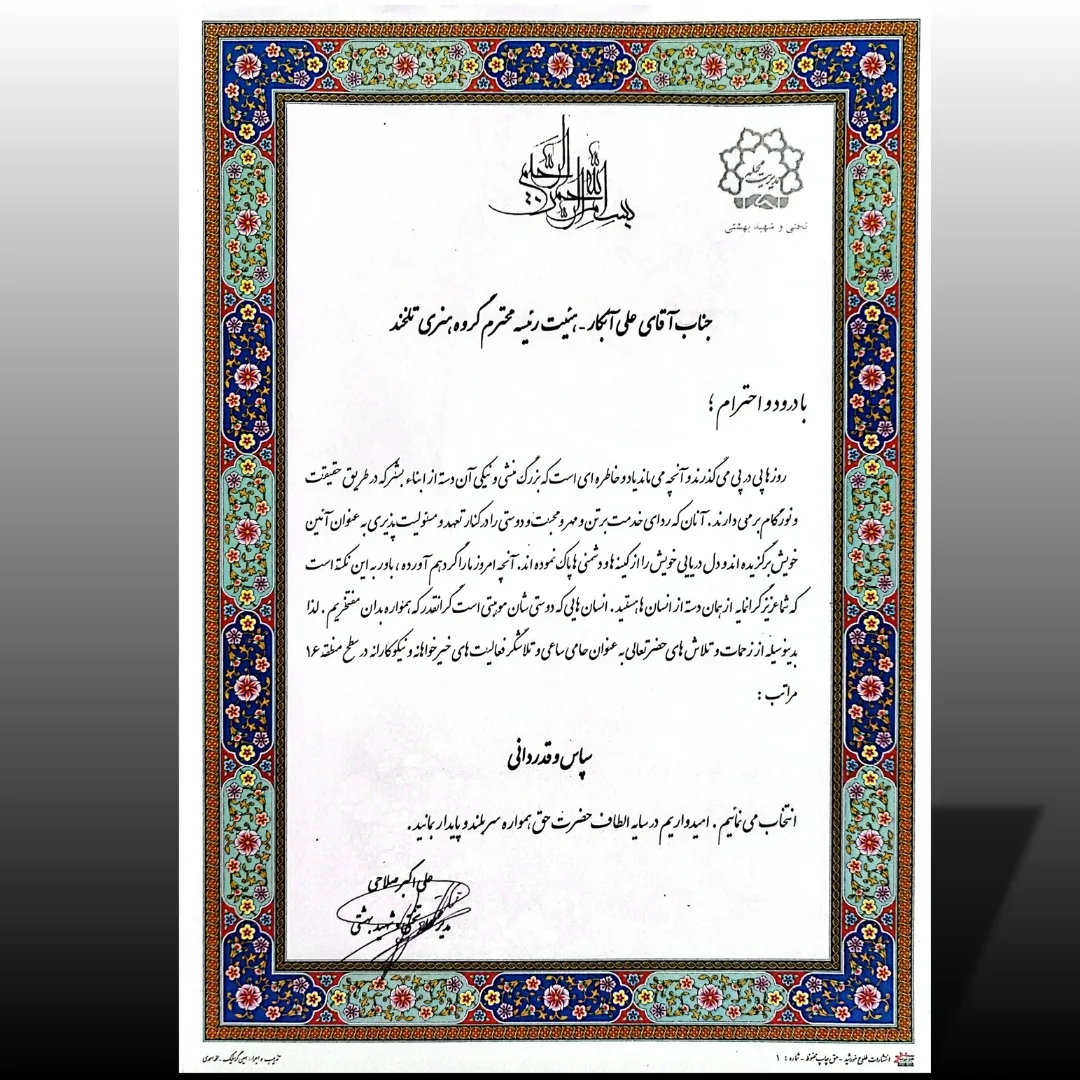 بسم الله الرحمن الرحیم
مدیریت محله
تختی و شهید بهشتی
جناب آقای علی آبکار - هیئت رئیسه محترم گروه هنری تلخند
با درود و احترام ؛
روزها پی در پی می گذرند و آنچه می ماند یاد و خاطره ای است که بزرگ منشی و نیکی آن دسته از ابناء بشر که در طریق حقیقت
و نور گام بر می دارند . آنان که ردای خدمت بر تن و مهر و محبت و دوستی را در کنار تعهد و مسئولیت پذیری به عنوان آئین
خویش برگزیده اند و دل دریایی خویش را از کینه ها و دشمنی ها پاک نموده اند. آنچه امروز ما را گرد هم آورده ، باور به این نکته است
که شما عزیز گرانمایه از همان دسته از انسان ها هستید . انسان هایی که دوستی شان موهبتی است گرانقدر که همواره بدان مفتخریم . لذا
بدینوسیله از زحمات و تلاش های حضرتعالی به عنوان حامی ساعی و تلاشگر فعالیت های خیرخواهانه و نیکوکارانه در سطح منطقه ۱۶
مراتب :
سپاس و قدردانی
انتخاب می نمائیم . امیدواریم در سایه الطاف حضرت حق همواره سربلند و پایدار بمانید .
علی اکبر صلاحی
مدیر محلات تختی و شهید بهشتی
انتشارات طلوع خورشید - حق چاپ محفوظ - شماره : ۱